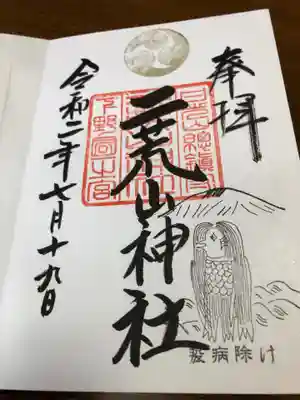 奉拝
二荒山神社
令和二年七月十九日
疫病除け